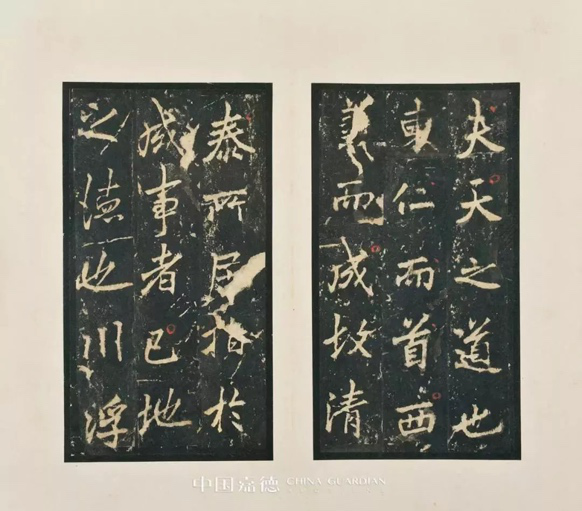 夫天之道也
東仁而首西
義而成故清
泰所居指於
成事者已地
之德也川浮
中国嘉德 CHINA GUARDIAN